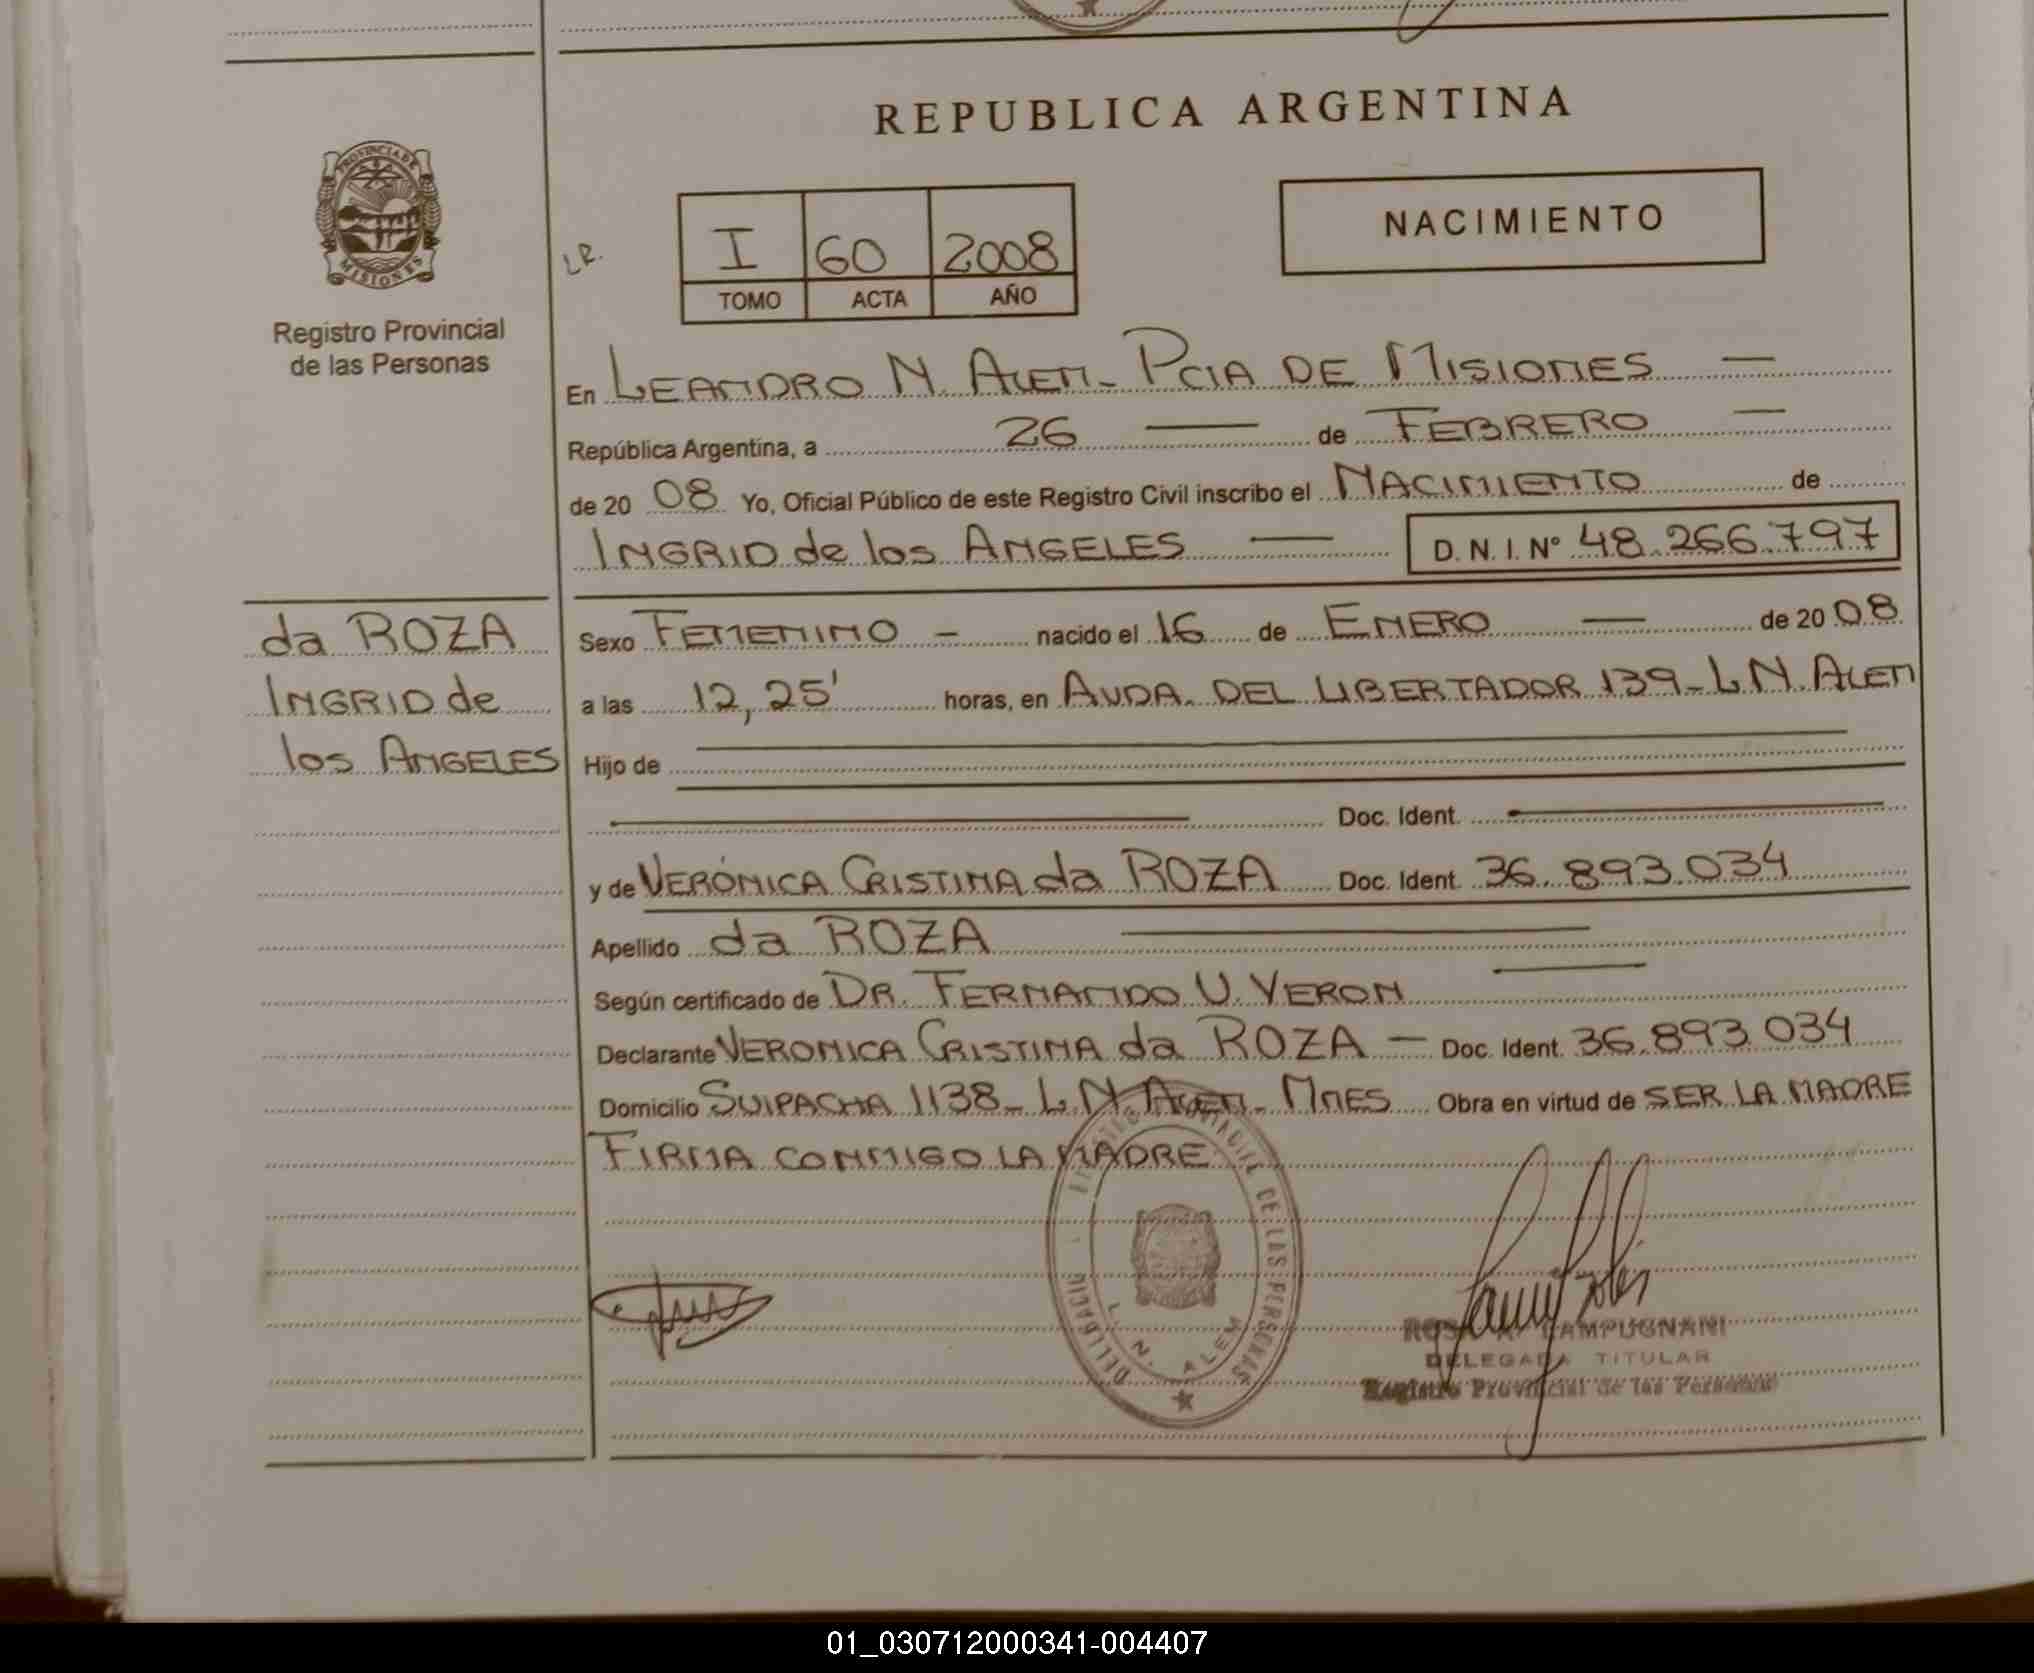 REPUBLICA ARGENTINA
PROVINCIA DE
MISIONES
Registro Provincial
de las Personas
LR.
I 60 2008
TOMO ACTA AÑO
NACIMIENTO
En LEANDRO N. ALEM - PCIA DE MISIONES —
República Argentina, a 26 — de FEBRERO —
de 20 08 Yo, Oficial Público de este Registro Civil inscribo el NACIMIENTO de
INGRID de los ANGELES — D. N. I. Nº 48.266.797
da ROZA
INGRID de
los ANGELES
Sexo FEMENINO - nacido el 16 de ENERO — de 20 08
a las 12,25' horas, en AVDA. DEL LIBERTADOR 139 - L N. ALEM
Hijo de
Doc. Ident.
y de VERÓNICA CRISTINA da ROZA Doc. Ident. 36.893.034
Apellido da ROZA —
Según certificado de DR. FERNANDO U. VERON —
Declarante VERONICA CRISTINA da ROZA — Doc. Ident. 36.893.034
Domicilio SUIPACHA 1138 - L. N. ALEM - MNES Obra en virtud de SER LA MADRE
FIRMA CONMIGO LA MADRE
DE LAS PERSONAS
L. N. ALEM
CAMPUGNANI
DELEGADA TITULAR
Registro Provincial de las Personas
01_030712000341-004407